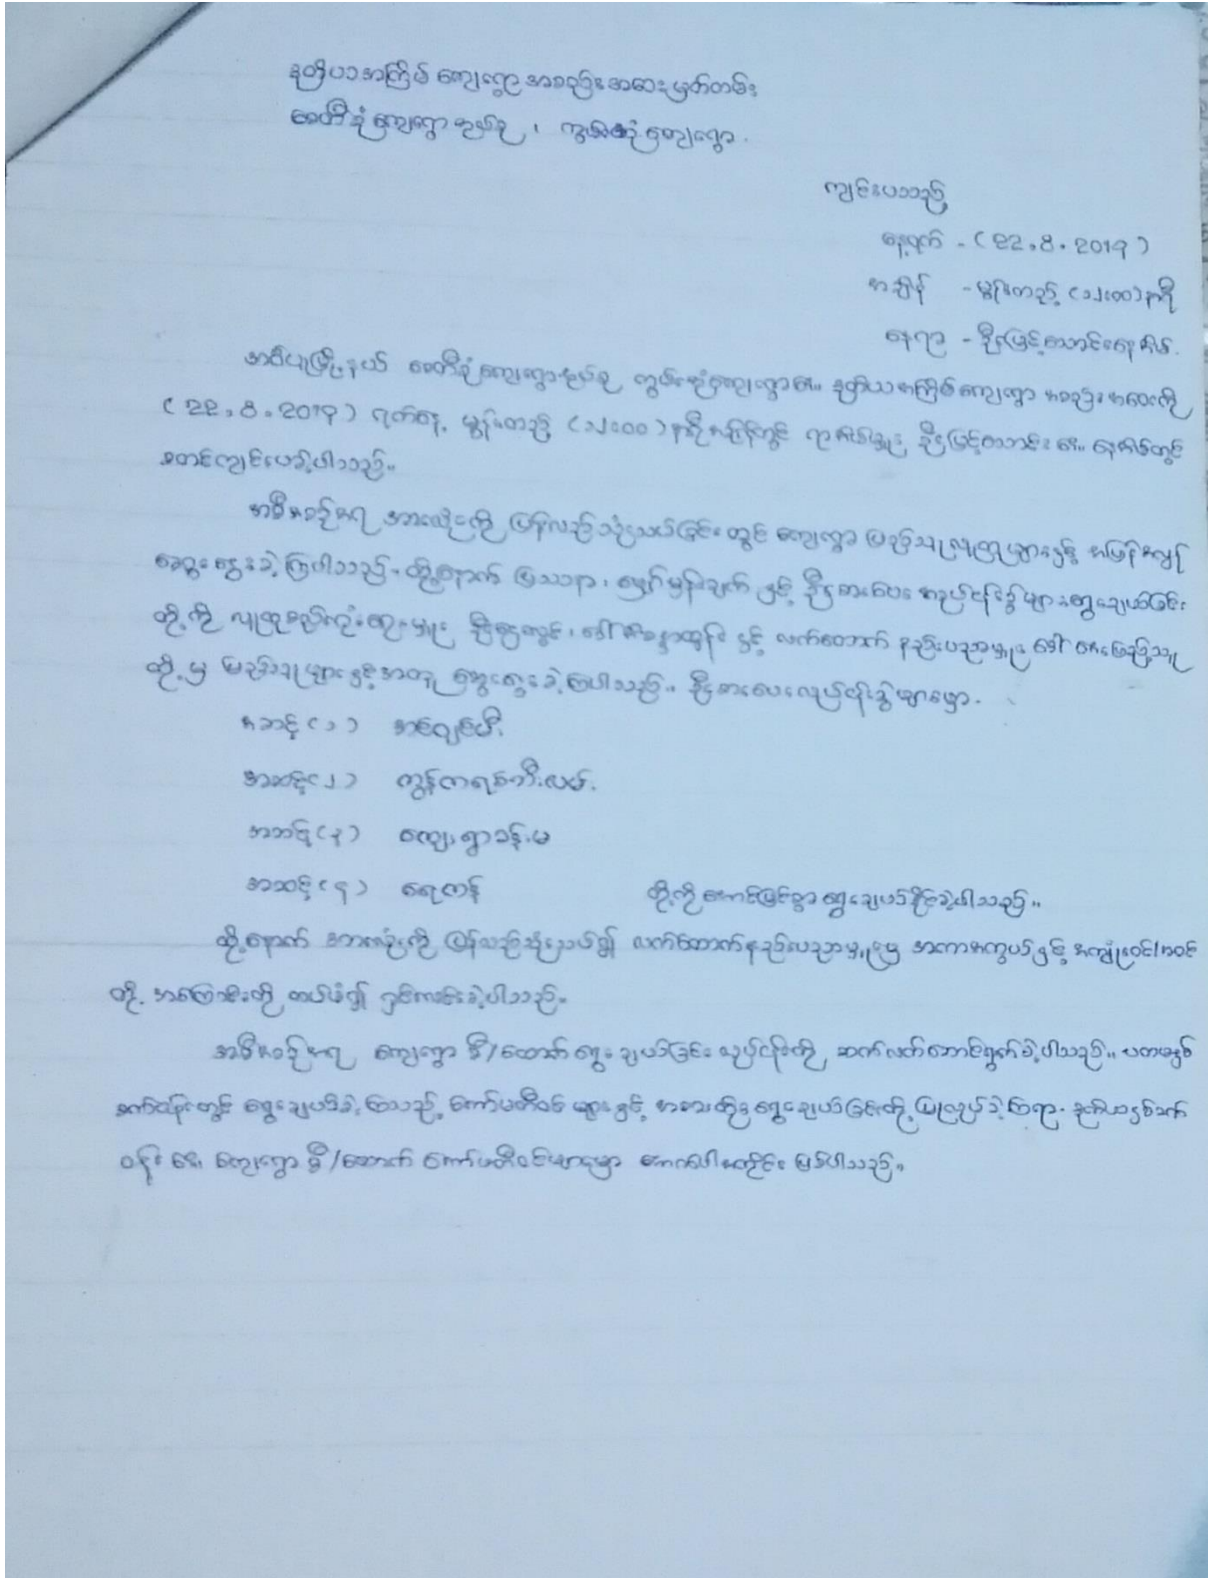 ဒုတိယအကြိမ် ကျေးရွာအစည်းအဝေးမှတ်တမ်း
စေတီခုံကျေးရွာအုပ်စု ၊ ကျေးရွာ.
ကျင်းပသည့်
နေ့ရက် - (22.8.2019)
အချိန် - မွန်းတည့် (၁၂:၀၀) နာရီ
နေရာ - ဦးမြင့်သောင်းနေအိမ်.
မြို့နယ် စေတီခုံကျေးရွာအုပ်စု ကျေးရွာ၏ ဒုတိယအကြိမ်ကျေးရွာ အစည်းအဝေးကို
(22.8.2019) ရက်နေ့ မွန်းတည့် (၁၂:၀၀) နာရီအချိန်တွင် ရာအိမ်မှူး ဦးမြင့် ၏ နေအိမ်တွင်
စတင်ကျင်းပခဲ့ပါသည်။
အစီအစဉ်အရ အားလုံးကို ပြန်လည်သုံးသပ်ခြင်းတွင် ကျေးရွာ ပြည်သူလူထုများနှင့် အပြန်အလှန်
ဆွေးနွေးခဲ့ကြပါသည်။ ထို့နောက် ပြဿနာ၊ မျှော်မှန်းချက် နှင့် ဦးစားပေး လုပ်ငန်းခွဲများရွေးချယ်ခြင်း
တို့ကို လူထုစည်းရုံးရေးမှူး နှင့် လက်ထောက် နည်းပညာမှူး ဒေါ်
တို့မှ ပြည်သူများနှင့်အတူ ဆွေးနွေးခဲ့ကြပါသည်။ ဦးစားပေးလုပ်ငန်းခွဲများမှာ.
အဆင့်(၁)
အဆင့်(၂) ကွန်ကရစ်လမ်း.
အဆင့်(၃) ကျေးရွာခန်းမ
အဆင့်(၄) ရေကန် တို့ကို အောင်မြင်စွာ ရွေးချယ်နိုင်ခဲ့ပါသည်။
ထို့နောက် အားလုံးကို ပြန်လည်သုံးသပ်၍ လက်ထောက်နည်းပညာမှူးမှ အကာအကွယ်နှင့် အကျုံးဝင်/မဝင်
တို့ အကြောင်းကို ထပ်မံ၍ ရှင်းလင်းခဲ့ပါသည်။
အစီအစဉ်အရ ကျေးရွာ စီ/ထောက် ရွေးချယ်ခြင်း လုပ်ငန်းကို ဆက်လက်ဆောင်ရွက်ခဲ့ပါသည်။ ပထမနှစ်
စက်ဝန်းတွင် ရွေးချယ်ခဲ့ကြသည့် ကော်မတီဝင် များနှင့် အစားထိုးရွေးချယ်ခြင်းတို့ ပြုလုပ်ခဲ့ကြရာ. ဒုတိယနှစ်စက်
ဝန်း ၏ ကျေးရွာ စီ/ထောက် ကော်မတီဝင်များမှာ အောက်ပါအတိုင်း ဖြစ်ပါသည်။